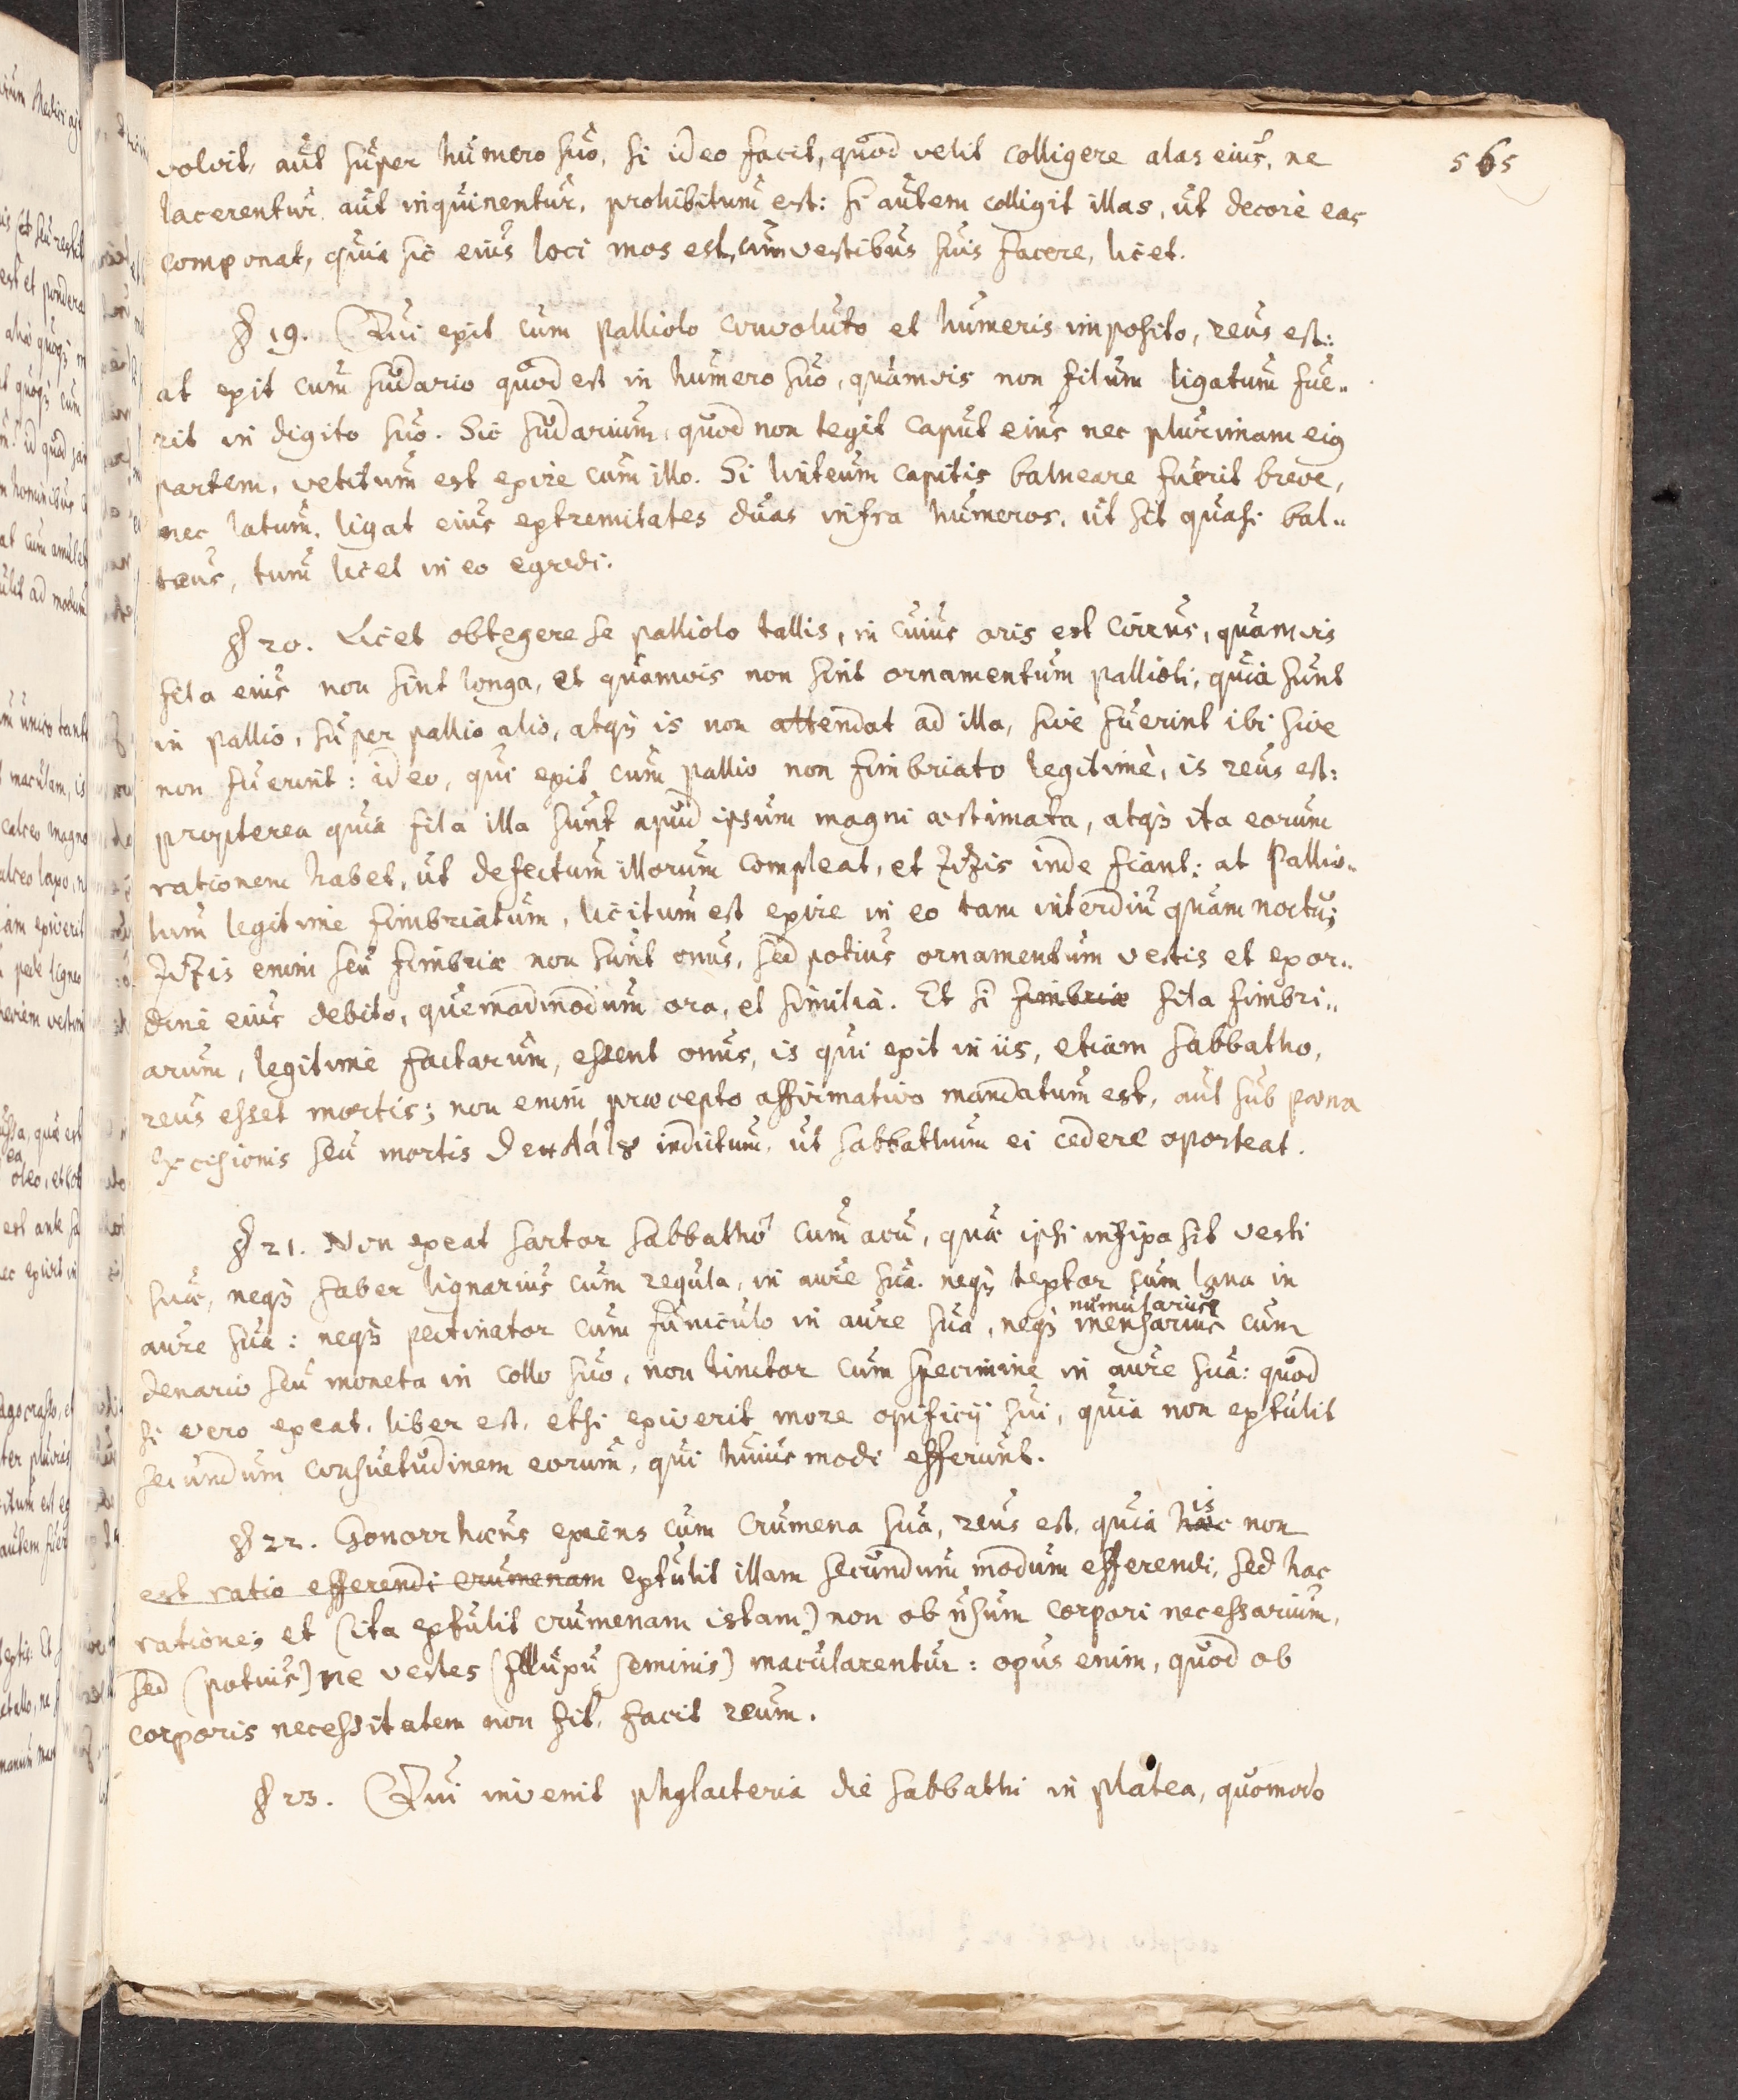 565
volvit, aut super humero suo, si ideo facit, quod velit colligere alas eius, ne
lacerentur aut inquinentur, prohibitum est: si autem colligit illas, ut decorè eas
componat, quia sic eius loci mos est, cum vestibus suis facere, licet.
§ 19. Qui exit cum palliolo convoluto et humeris imposito, reus est:
at exit cum sudario quod est in humero suo, quamvis non filum ligatum fue..
rit in digito suo. Sic sudarium, quod non tegit caput eius nec plurimam eiꝰ
partem, vetitum est exire cum illo. Si linteum capitis balneare fuerit breve,
nec latum, ligat eius extremitates duas infra humeros, ut sit quasi bal..
teus, tum licet in eo egredi.
§ 20. Licet obtegere se palliolo tallis, in cuius oris est cirrus, quamvis
fila eius non sint longa, et quamvis non sint ornamentum pallioli, quia sunt
in pallio, super pallio alio, atqꝫ is non attendat ad illa, sive fuerint ibi sive
non fuerint: ideo, qui exit cum pallio non fimbriato legitimè, is reus est:
propterea quia fila illa sunt apud ipsum magni æstimata, atqꝫ ita eorum
rationem habet, ut defectum illorum compleat, et Zizis inde fiant: at Pallio..
lum legitime fimbriatum, licitum est exire in eo tam interdiu quam noctu;
Zizis enim seu fimbriæ non sunt onus, sed potius ornamentum vestis et ex or..
dine eius debito, quemadmodum ora, et similia. Et si fimbriæ fila fimbri..
arum, legitime factarum, essent onus, is qui exit in iis, etiam Sabbatho,
reus esset mortis; non enim præcepto affirmativo mandatum est, aut sub pœna
excisionis seu mortis indictum, ut Sabbathum ei cedere oporteat.
§ 21. Non exeat sartor Sabbatho cum acu, quæ ipsi infixa sit vesti
suæ, neqꝫ faber lignarius cum regula, in aure sua. neqꝫ textor cum lana in
aure sua: neqꝫ pectinator cum funiculo in aure sua, neqꝫ mensarius cum
numularius
denario seu moneta in collo suo, non tinctor cum specimine in aure sua: quod
si vero exeat, liber est, etsi exiverit more opificij sui, quia non extulit
secundum consuetudinem eorum, qui huiusmodi efferunt.
§ 22. Gonorrhæus exiens cum crumena sua, reus est, quia hæc is non
est ratio efferendi crumenam extulit illam secundum modum efferendi, sed hac
ratione; et (ita extulit crumenam istam) non ob usum corpori necessarium,
sed (potius) ne vestes (fluxu seminis) macularentur: opus enim, quod ob
corporis necessitatem non fit, facit reum.
§ 23. Qui invenit phylacteria die Sabbathi in platea, quomodo